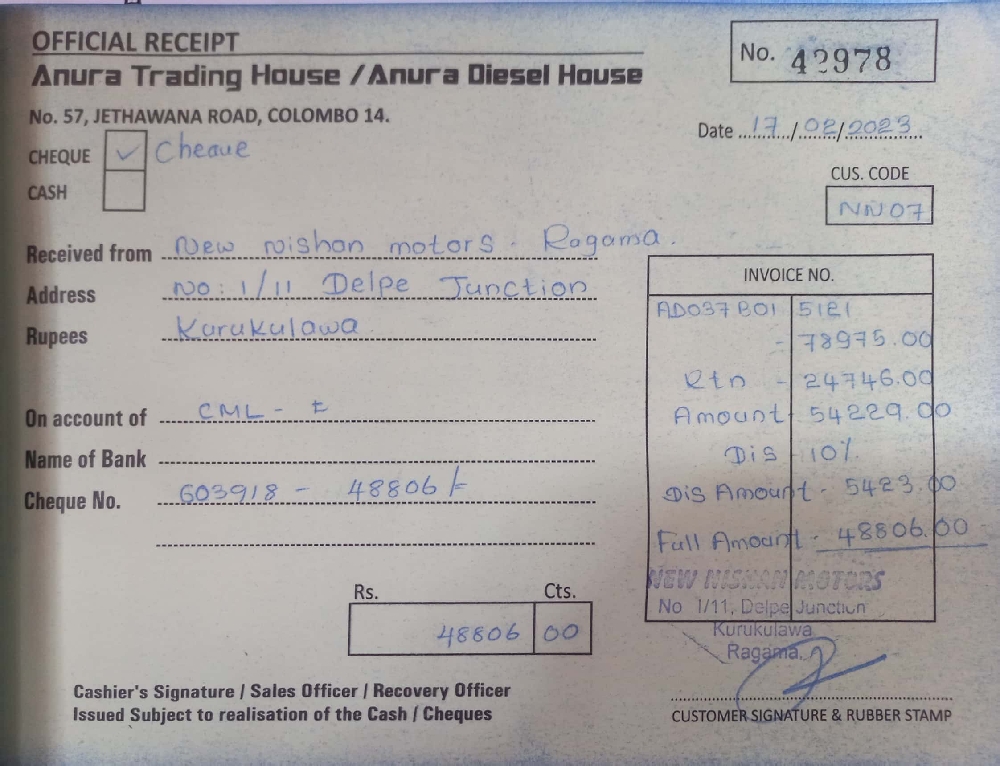 OFFICIAL RECEIPT
Anura Trading House / Anura Diesel House
No. 57, JETHAWANA ROAD, COLOMBO 14.
No. 42978
Date 17/02/2023
CHEQUE ✓ Cheque
CASH
CUS. CODE
NN07
Received from New nishan motors - Ragama.
Address No: 1/11 Delpe Junction
Rupees Kurukulawa
On account of CML -
Name of Bank
Cheque No. 603918 - 48806/=
INVOICE NO.
AD037B01 5121
- 78975.00
Rtn - 24746.00
Amount - 54229.00
Dis - 10%
Dis Amount - 5423.00
Full Amount - 48806.00
Rs. Cts.
48806 00
NEW NISHAN MOTORS
No 1/11, Delpe Junction
Kurukulawa
Ragama.
Cashier's Signature / Sales Officer / Recovery Officer
Issued Subject to realisation of the Cash / Cheques
CUSTOMER SIGNATURE & RUBBER STAMP